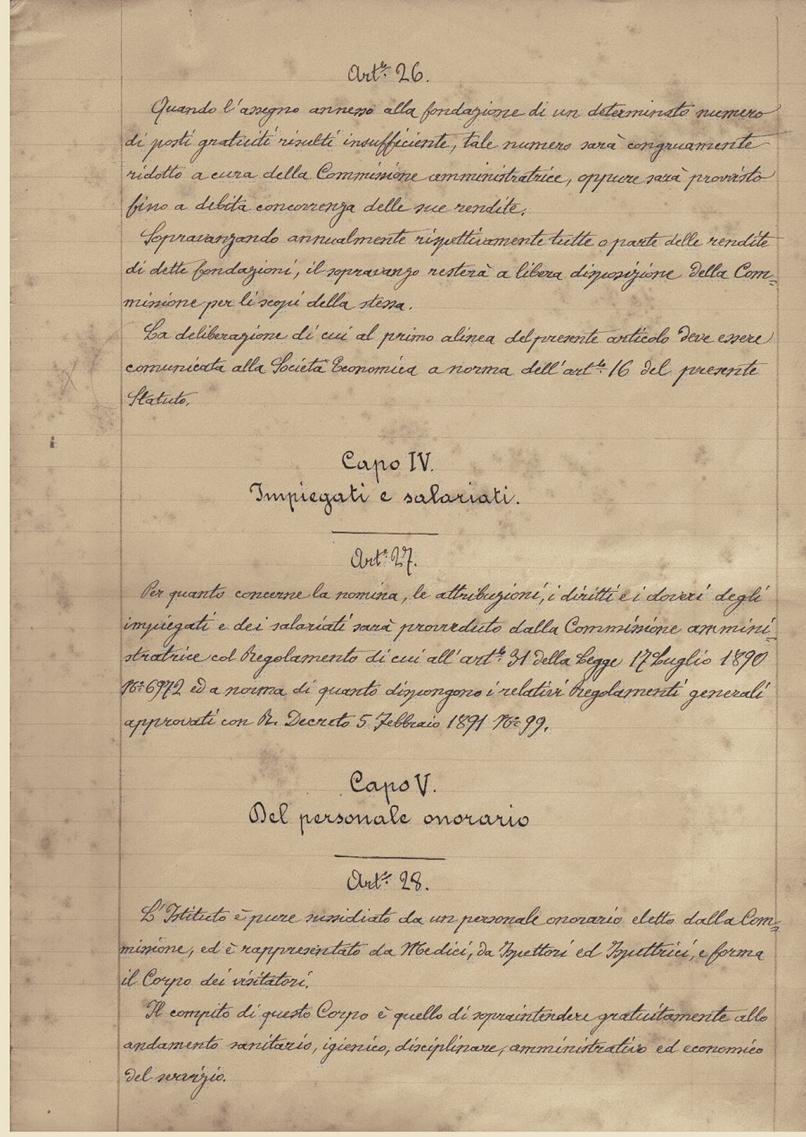 Art.° 26.
Quando l'assegno annesso alla fondazione di un determinato numero
di posti gratuiti risulti insufficiente, tale numero sarà congruamente
ridotto a cura della Commissione amministratrice, oppure sarà provvisto
fino a debita concorrenza delle sue rendite.
Sopravanzando annualmente rispettivamente tutte o parte delle rendite
di dette fondazioni, il sopravanzo resterà a libera disposizione della Com=
missione per li scopi della stessa.
La deliberazione di cui al primo alinea del presente articolo deve essere
comunicata alla Società Economica a norma dell'art.° 16 del presente
Statuto.
Capo IV.
Impiegati e salariati.
Art.° 27.
Per quanto concerne la nomina, le attribuzioni, i diritti e i doveri degli
impiegati e dei salariati sarà provveduto dalla Commissione ammini=
stratrice col Regolamento di cui all'art.° 31 della Legge 17 Luglio 1890
N.° 6972 ed a norma di quanto dispongono i relativi Regolamenti generali
approvati con R. Decreto 5 Febbraio 1891 N.° 99.
Capo V.
Del personale onorario
Art.° 28.
L'Istituto è pure sussidiato da un personale onorario eletto dalla Com=
missione, ed è rappresentato da Medici, da Ispettori ed Ispettrici, e forma
il Corpo dei visitatori.
Il compito di questo Corpo è quello di sopraintendere gratuitamente allo
andamento sanitario, igienico, disciplinare, amministrativo ed economico
del servizio.